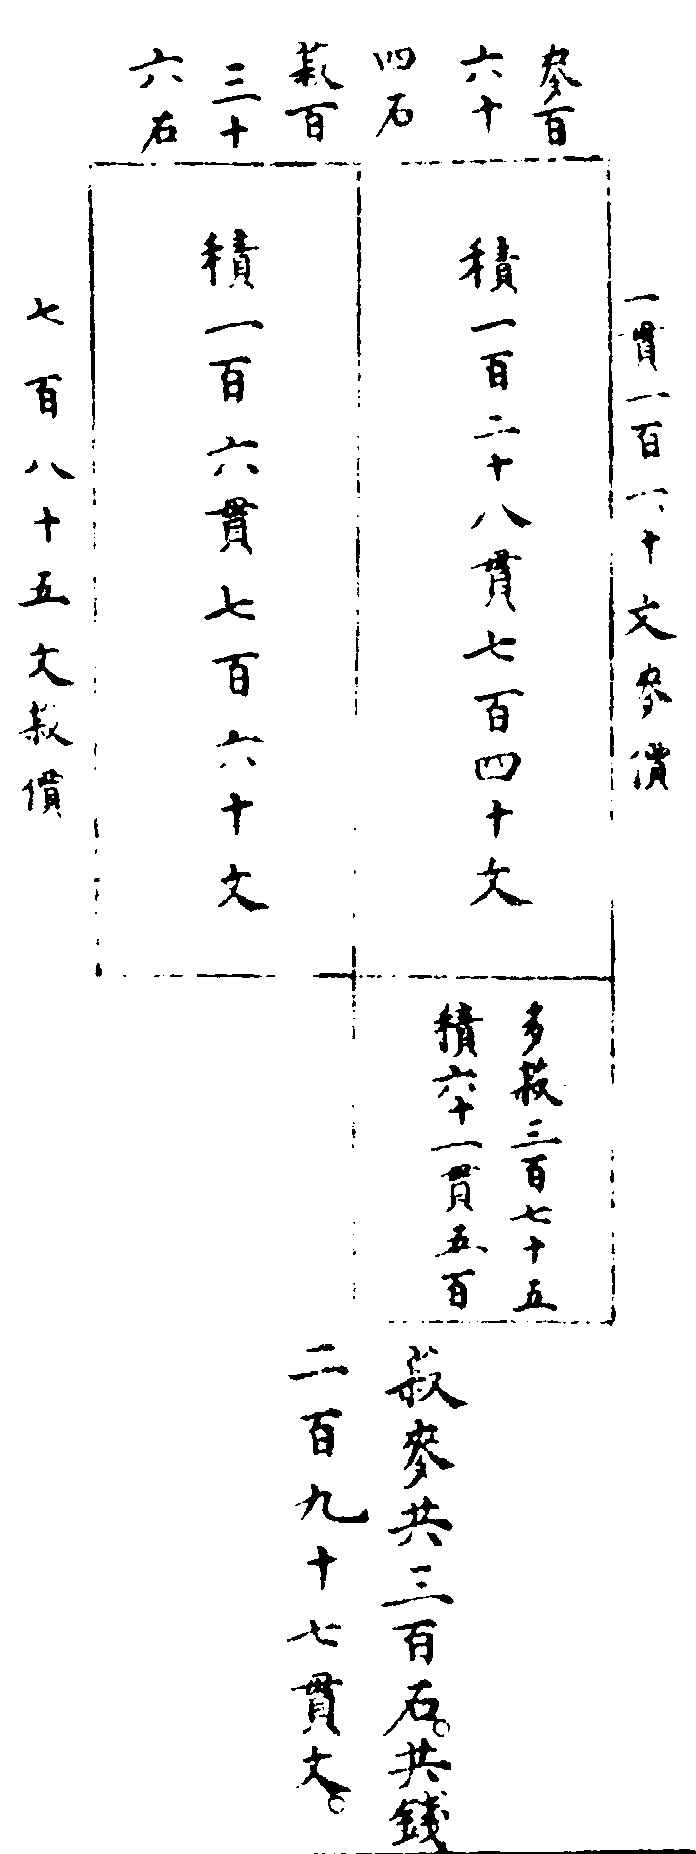 麥百
六十
四石
菽百
三十
六石
一貫一百六十文麥價
積一百二十八貫七百四十文
積一百六貫七百六十文
七百八十五文菽價
多菽三百七十五
積六十一貫五百
菽麥共三百石。共錢
二百九十七貫文。